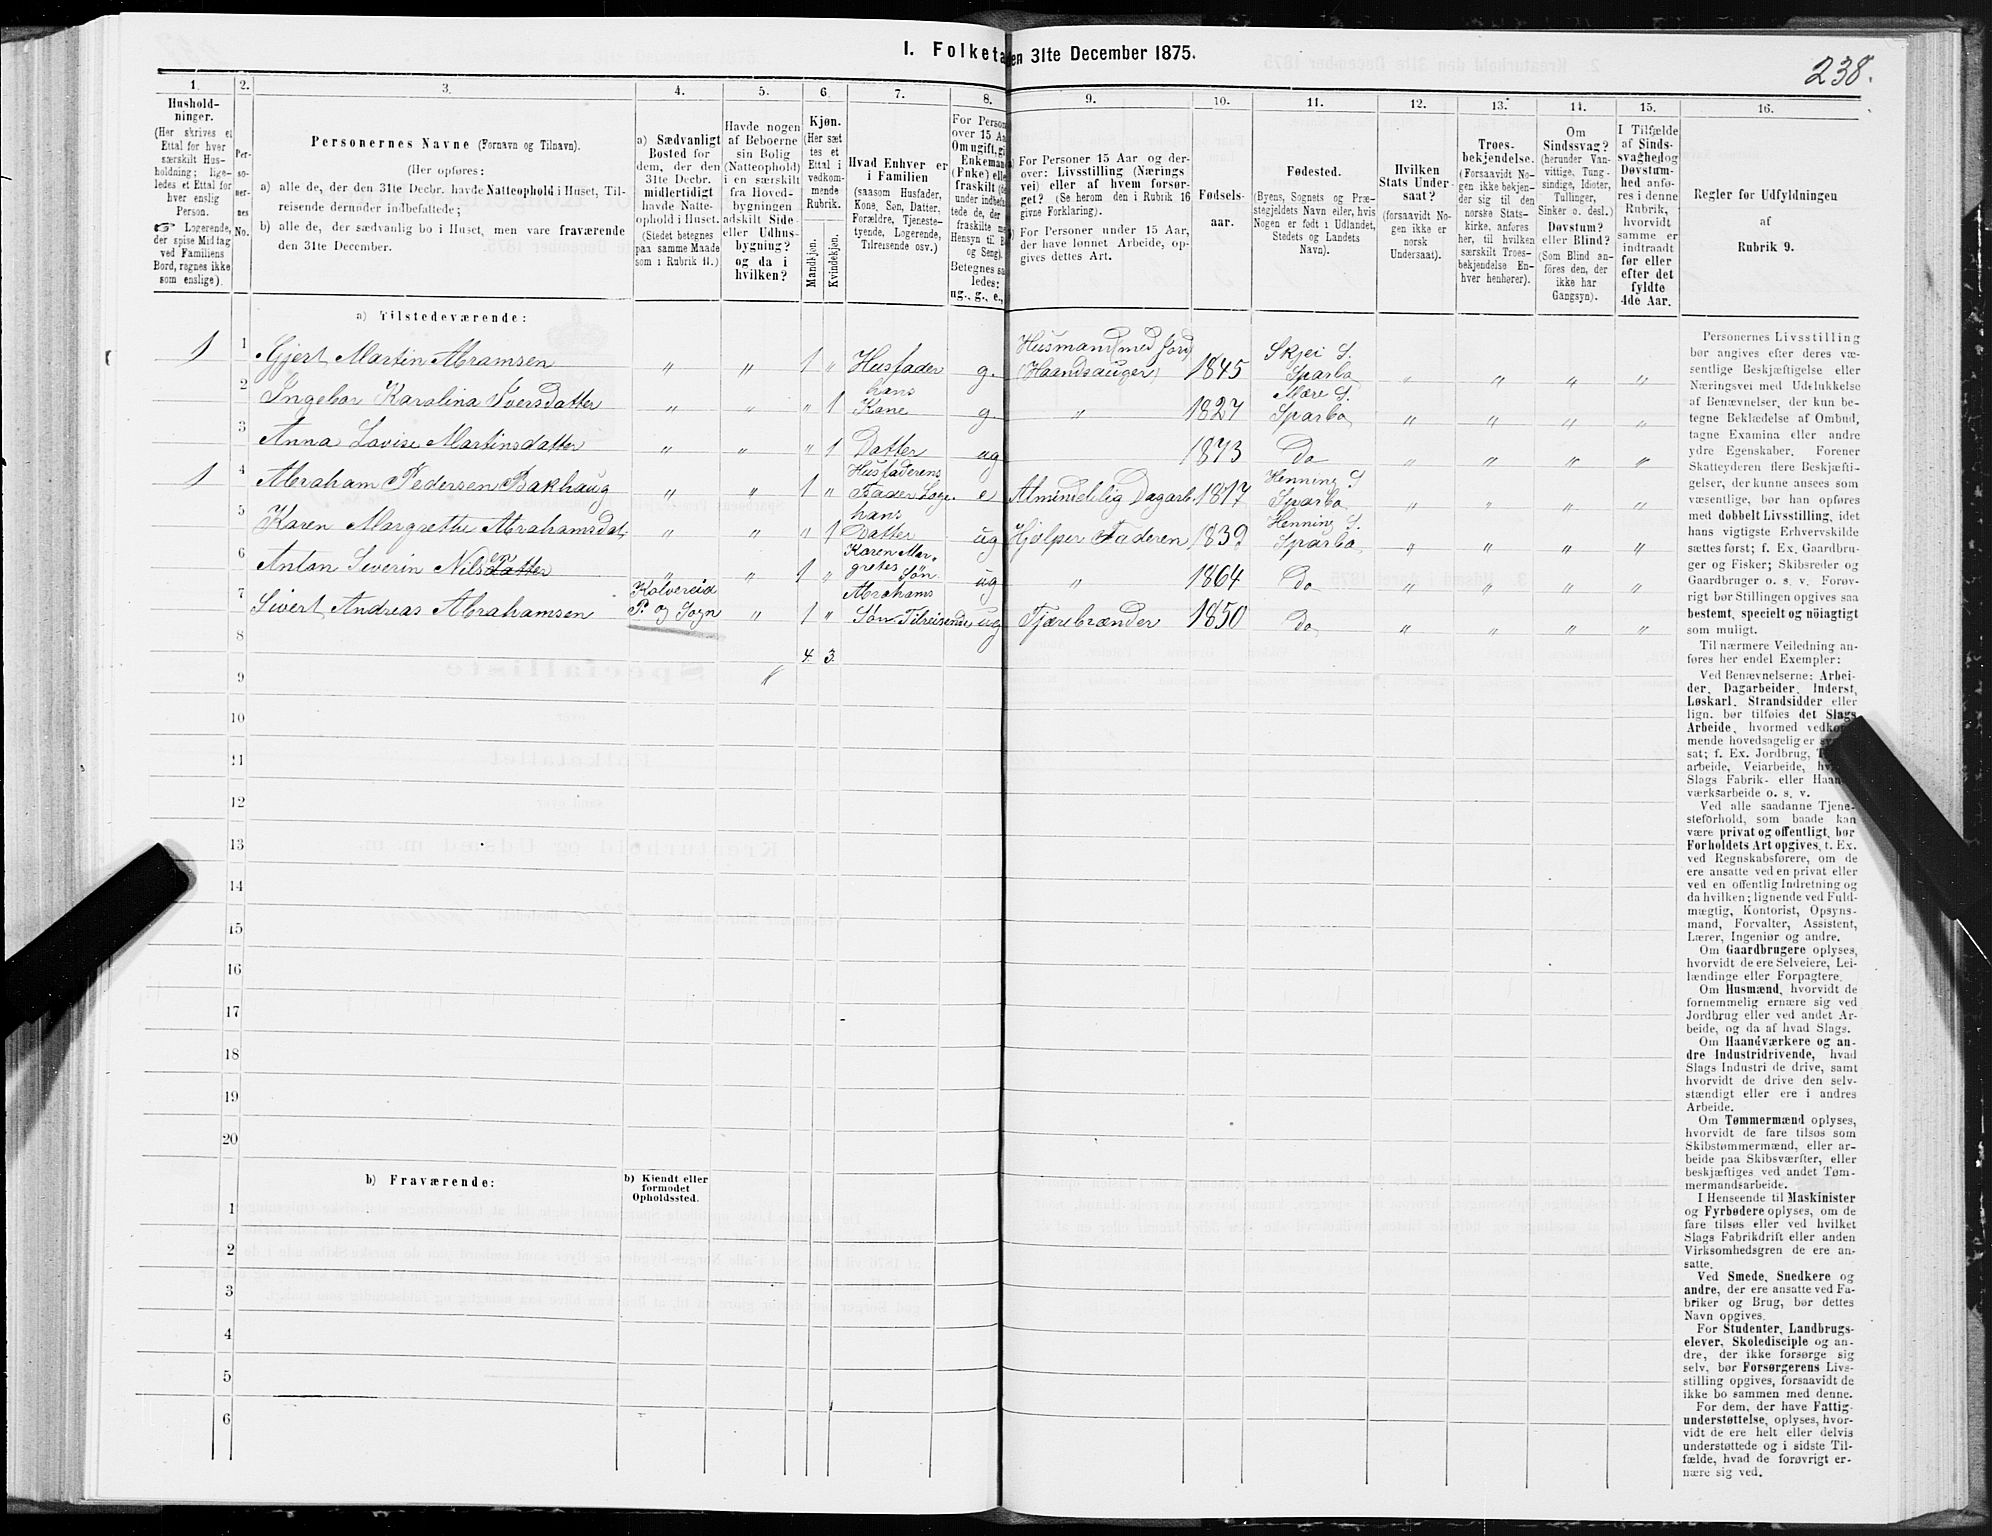 I. Folketa en 31te December 1875.
238.
1. 2. 3. 4. 5. 6. 7. 8. 9. 10. 11. 12. 13. 14. 15. 16.
Hushold-
ninger.
(Her skrives et
Ettal for hver
særskilt Hus-
holdning; lige-
ledes et Ettal for
hver enslig
Person.
☞ Logerende,
der spise Middag
ved Familiens
Bord, regnes ikke
som enslige).
Per-
so-
ner-
nes
No.
Personernes Navne (Fornavn og Tilnavn).
(Her opføres:
a) alle de, der den 31te Decbr. havde Natteophold i Huset, Til-
reisende derunder indbefattede;
b) alle de, der sædvanlig bo i Huset, men vare fraværende
den 31te December.
a) Sædvanligt
Bosted for
dem, der den
31te Decbr.
midlertidigt
havde Natte-
ophold i Huset.
(Stedet betegnes
paa samme Maade
som i Rubrik 11.)
Havde nogen
af Beboerne
sin Bolig
(Natteophold)
i en særskilt
fra Hoved-
bygningen
adskilt Side-
eller Udhus-
bygning?
og da i
hvilken?
Kjøn.
(Her sæt
tes et
Ettal i
vedkom-
mende
Rubrik.
Mandkjøn.
Kvindekjøn.
Hvad Enhver er
i Familien
(saasom Husfader,
Kone, Søn, Datter,
Forældre, Tjeneste-
tyende, Logerende,
Tilreisende osv.)
For Person
over 15 Aa
Om ugift, gi
Enkeman
(Enke) elle
fraskilt (de
under indbefa
tede de, der
fraskilte me
Hensyn til B
og Seng).
Betegnes sa
ledes:
ug., g., e.,
For Personer 15 Aar og der-
over: Livsstilling (Nærings
vei) eller af hvem forsør-
get? (Se herom den i Rubrik 16
givne Forklaring).
For Personer under 15 Aar,
der have lønnet Arbeide, op-
gives dettes Art.
Fødsels-
aar.
Fødested.
(Byens, Sognets og Præ-
stegjeldets Navn eller, hvis
Nogen er født i Udlandet,
Stedets og Landets
Navn).
Hvilken
Stats Under-
saat?
(forsaavidt No-
gen ikke er
norsk
Undersaat).
Troes-
bekjendelse.
(Forsaavidt No-
gen ikke bekjen-
der sig til den
norske Stats-
kirke, anføres
her, til hvilken
særskilt Troes-
bekjendelse En-
hver henhører).
Om
Sindssvag?
(herunder Van-
vittige, Tung-
sindige, Idioter,
Tullinger,
Sinker o. desl.)
Døvstum?
eller Blind?
(Som Blind an-
føres den, der
ikke har
Gangsyn).
I Tilfælde
af Sinds-
svaghed og
Døvstum-
hed anfø-
res i denne
Rubrik,
hvorvidt
samme er
indtraadt
før eller
efter det
fyldte
4de Aar.
Regler for Udfyldningen
af
Rubrik 9.
a) Tilstedeværende:
1 1 Gjert Martin Abramsen " " 1 " Husfader g. Husmand med Jord (Haandsauger) 1845 Skjei S. Sparbo " " " "
2 Ingebor Karolina Iversdatter " " " 1 hans Kone g " 1827 Mære S. Sparbo " " " "
3 Anna Lovise Martinsdatter " " " 1 Datter ug 1873 Do " " " "
1 4 Abraham Pedersen Bakhaug " " 1 " Husfaderens Fader Loge. e Almindelig Dagarb. 1817 Henning S Sparbo " " " "
5 Karen Margrette Abrahamsdat, " " " 1 hans Datter ug Hjelper Faderen 1839 Henning S. Sparbo " " " "
6 Anton Severin Nils " " 1 " Karen Mar- gretes Søn ug " 1864 Do " " " "
7 Sivert Andreas Abrahamsen Kolvereid P. og Sogn " 1 " Abrahams Søn Tilreisende ug Tjærebrænder 1850 Do " " " "
8 4 3
9 "
10
11
12
13
14
15
16
17
18
19
20
b) Fraværende:
b) Kjendt eller
formodet
Opholdssted.
1
2
3
4
5
6
Personernes Livsstilling
bør angives efter deres væ-
sentlige Beskjæftigelse eller
Næringsvei med Udelukkelse
af Benævnelser, der kun be-
tegne Beklædelse af Ombud,
tagne Examina eller andre
ydre Egenskaber. Forener
Skatteyderen flere Beskjæfti-
gelser, der kunne ansees som
væsentlige, bør han opføres
med dobbelt Livsstilling, idet
hans vigtigste Erhvervskilde
sættes først; f. Ex. Gaardbru-
ger og Fisker; Skibsreder og
Gaardbruger o. s. v. Forøv-
rigt bør Stillingen opgives saa
bestemt, specielt og nøiagtigt
som muligt.
Til nærmere Veiledning an-
føres her endel Exempler:
Ved Benævnelserne: Arbei-
der, Dagarbeider, Inderst,
Løskarl, Strandsidder eller
lign. bør tilføies det Slags
Arbeide, hvormed vedkom-
mende hovedsagelig er
sat; f. Ex. Jordbrug,
arbeide, Veiarbeide,
Slags Fabrik- eller Haand-
værksarbeide o. s. v.
Ved alle saadanne Tjene-
steforhold, som baade kan
være privat og offentligt, bør
Forholdets Art opgives, t. Ex.
ved Regnskabsførere, om de
ere ansatte ved en privat eller
ved en offentlig Indretning og
da hvilken; lignende ved Fuld-
mægtig, Kontorist, Opsyns-
mand, Forvalter, Assistent,
Lærer, Ingeniør og andre.
Om Gaardbrugere oplyses,
hvorvidt de ere Selveiere, Lei-
lændinge eller Forpagtere.
Om Husmænd, hvorvidt de
fornemmelig ernære sig ved
Jordbrug eller ved andet Ar-
beide, og da af hvad Slags.
Om Haandværkere og an-
dre Industridrivende, hvad
Slags Industri de drive, samt
hvorvidt de drive den selv-
stændigt eller ere i andres
Arbeide.
Om Tømmermænd oplyses,
hvorvidt de fare tilsøs som
Skibstømmermænd, eller ar-
beide paa Skibsværfter, eller
beskjæftiges ved andet Tøm-
mermandsarbeide.
I Henseende til Maskinister
og Fyrbødere oplyses, om de
fare tilsøs eller ved hvilket
Slags Fabrikdrift eller anden
Virksomhedsgren de ere an-
satte.
Ved Smede, Snedkere og
andre, der ere ansatte ved Fa-
briker og Brug, bør dettes
Navn opgives.
For Studenter, Landbrugs-
elever, Skoledisciple og an-
dre, der ikke forsørge sig
selv, bør Forsørgerens Livs-
stilling opgives, forsaavidt de
ikke bo sammen med denne.
For dem, der have Fattig-
understøttelse, oplyses, hvor-
vidt de ere helt eller delvis
understøttede og i sidste Til-
fælde, hvad de forøvrigt er-
nære sig ved.